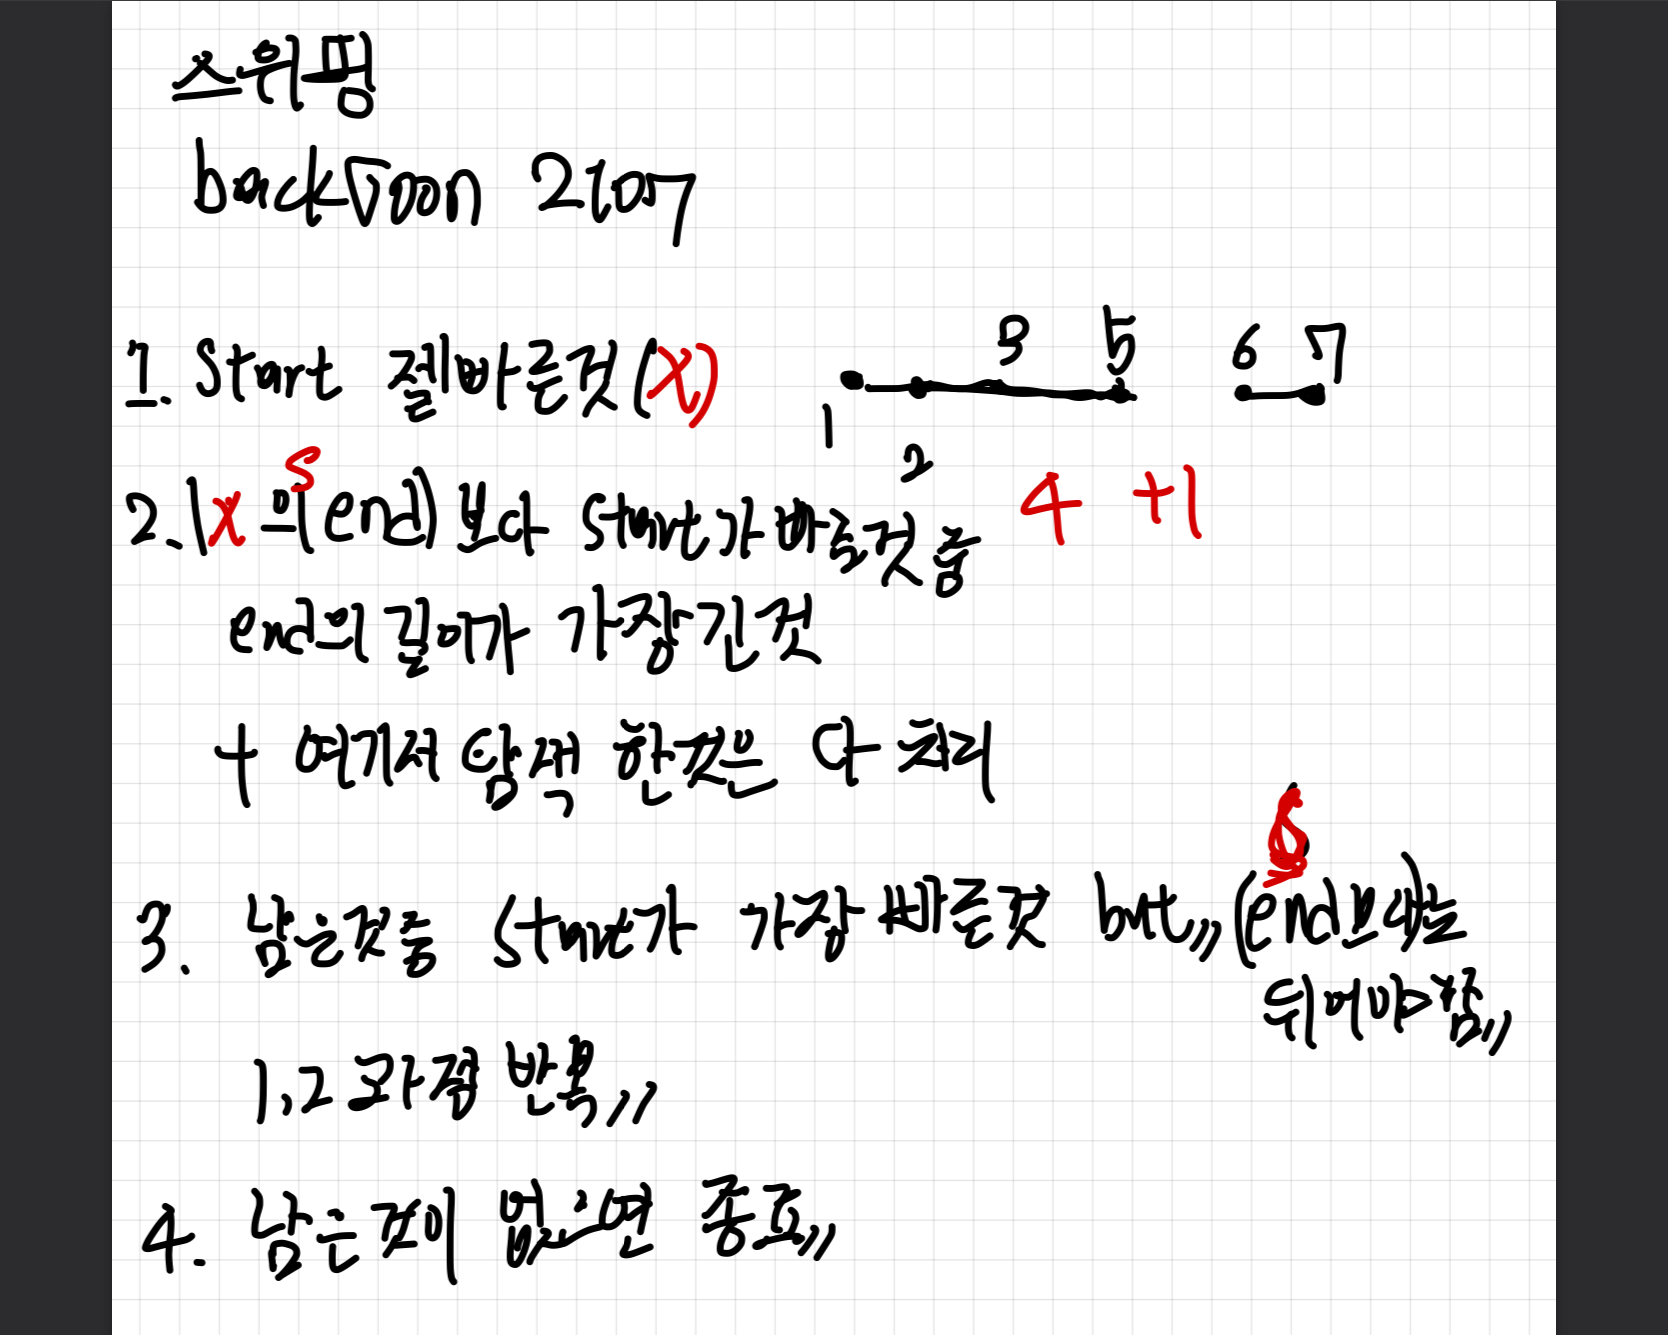 스위핑
backJoon 2107
3 5 6 7
1. Start 젤빠른것(X)
1
2
S
2. (X의 end)보다 Start가 빠른것중
4 +1
end의 길이가 가장긴것
+ 여기서 탐색 한것은 다 처리
3. 남은것중 Start가 가장 빠른것 but,, (end보다)는
뒤어야함,,
1,2 과정 반복,,
4. 남은것이 없으면 종료,,